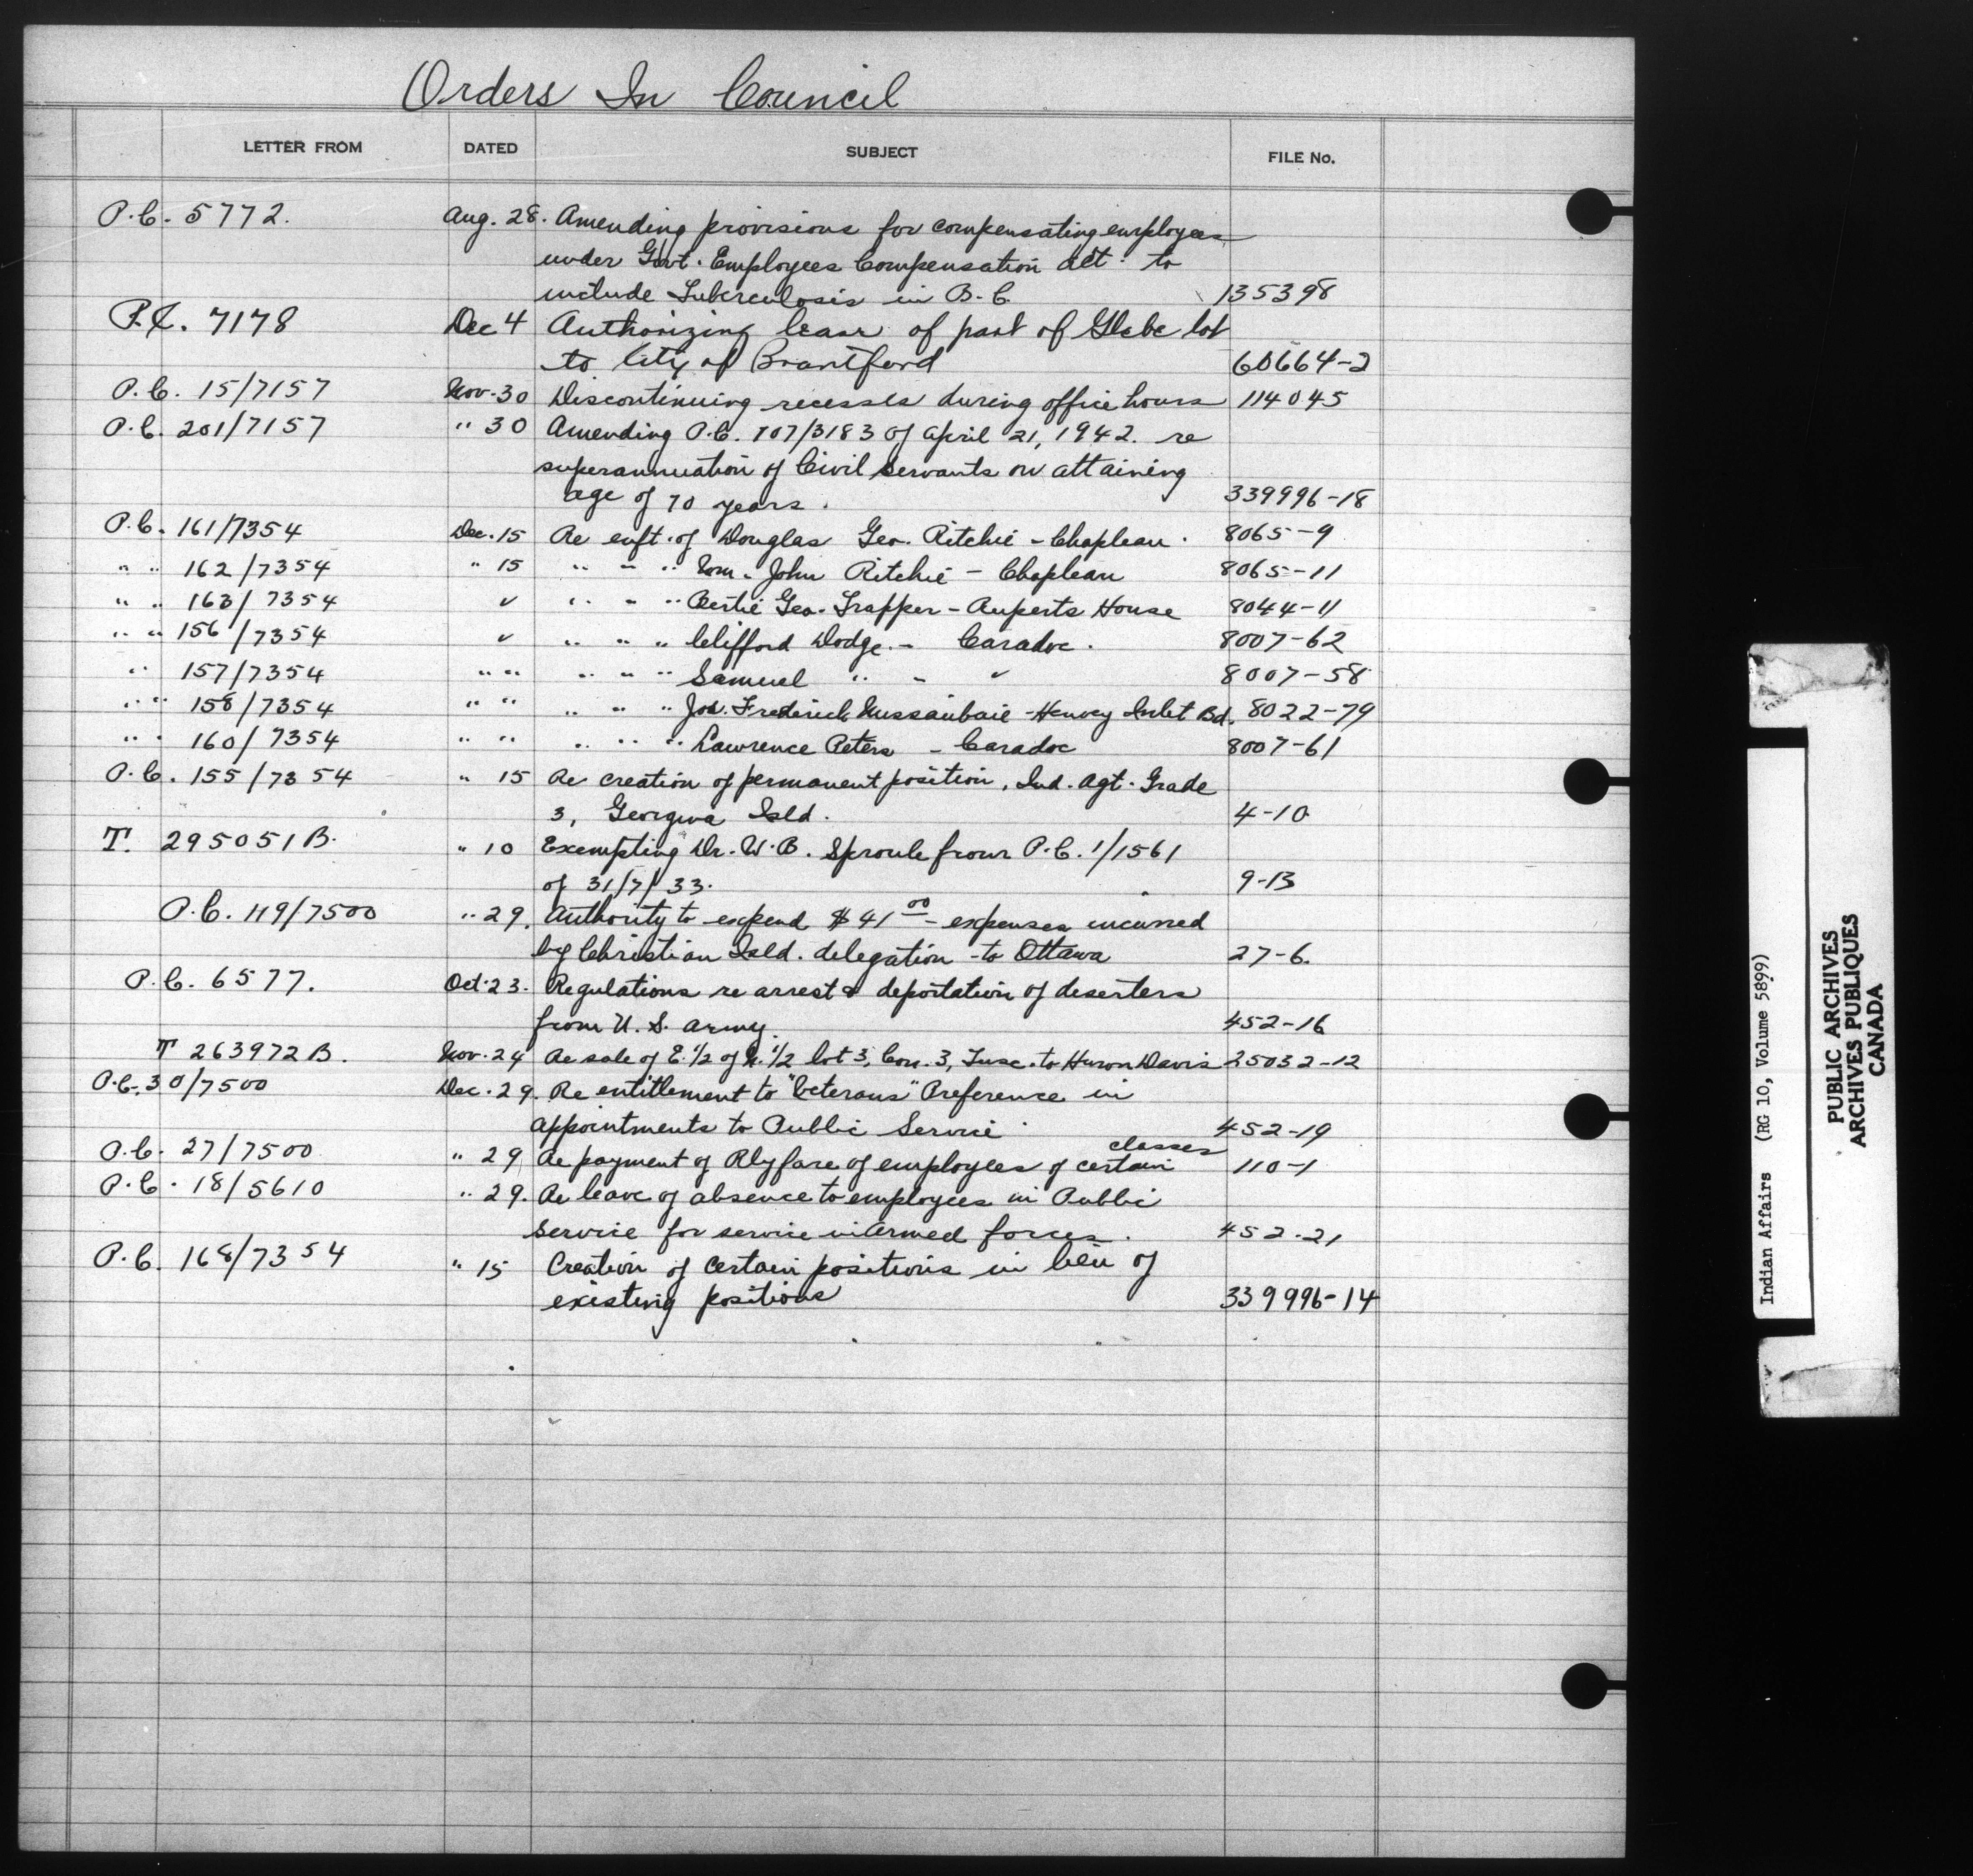 Orders In Council
LETTER FROM DATED SUBJECT FILE No.
P.C. 5772. Aug. 28. Amending provisions for compensating employees
under Govt. Employees Compensation Act. to
include Tuberculosis in B.C. 135398
P.C. 7178 Dec 4 Authorizing lease of part of Glebe lot
to City of Brantford 60664-2
P.C. 15/7157 Nov. 30 Discontinuing recesses during office hours 114045
P.C. 201/7157 " 30 Amending P.C. 107/3183 of April 21, 1942. re
superannuation of Civil Servants on attaining
age of 70 years. 339996-18
P.C. 161/7354 Dec. 15 Re enft. of Douglas Geo. Ritchie - Chapleau. 8065-9
" " 162/7354 " 15 " " " Wm. John Ritchie - Chapleau 8065-11
" " 163/7354 " " " " Bertie Geo. Trapper - Ruperts House 8044-11
" " 156/7354 " " " " Clifford Dodge. - Caradoc. 8007-62
" 157/7354 " " " " " Samuel " - " 8007-58
" " 158/7354 " " " " " Jos. Frederick - Henvey Inlet Bd. 8022-79
" " 160/7354 " " " " " Lawrence Peters - Caradoc 8007-61
P.C. 155/7354 " 15 Re creation of permanent position, Ind. Agt. Grade
3, Georgina Isld. 4-10
T. 295051 B. " 10 Exempting Dr. W.B. Sproule from P.C. 1/1561
of 31/7/33. 9-13
P.C. 119/7500 " 29. Authority to expend $41 00 - expenses incurred
by Christian Isld. delegation to Ottawa 27-6.
P.C. 6577. Oct. 23. Regulations re arrest & deportation of deserters
from U.S. Army. 452-16
T 263972 B. Nov. 24 Re sale of E. 1/2 of N. 1/2 lot 3, Con. 3, Tusc. to Huron Davis 25032-12
P.C. 30/7500 Dec. 29. Re entitlement to "Veterans" Preference in
appointments to Public Service 452-19
P.C. 27/7500 " 29 Re payment of Rly fare of employees of certain classes 110-1
P.C. 18/5610 " 29. Re leave of absence to employees in Public
Service for service in Armed forces. 452-21
P.C. 168/7354 " 15 Creation of certain positions in lieu of
existing positions 339996-14
Indian Affairs (RG 10, Volume 5899)
PUBLIC ARCHIVES
ARCHIVES PUBLIQUES
CANADA